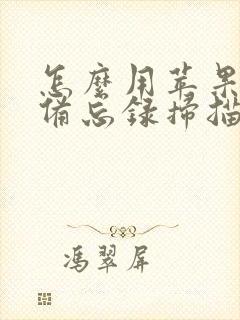 怎麼用苹果
備忘録掃描
馮翠屏